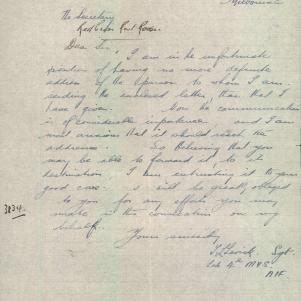 Melbourne
The Secretary
Red Cross
Dear Sir,
I am in the unfortunate
position of having no more definite
address of the person to whom I am
sending the enclosed letter than that I
have given. Now the communication
is of considerable importance and I am
most anxious that it should reach the
addressee. So Believing that you
may be able to forward it to its
destination I am entrusting it to your
good care. I will be greatly obliged
to you for any efforts you may
make in the connection on my
behalf.
3834
Yours sincerely
Sgt.
AIF